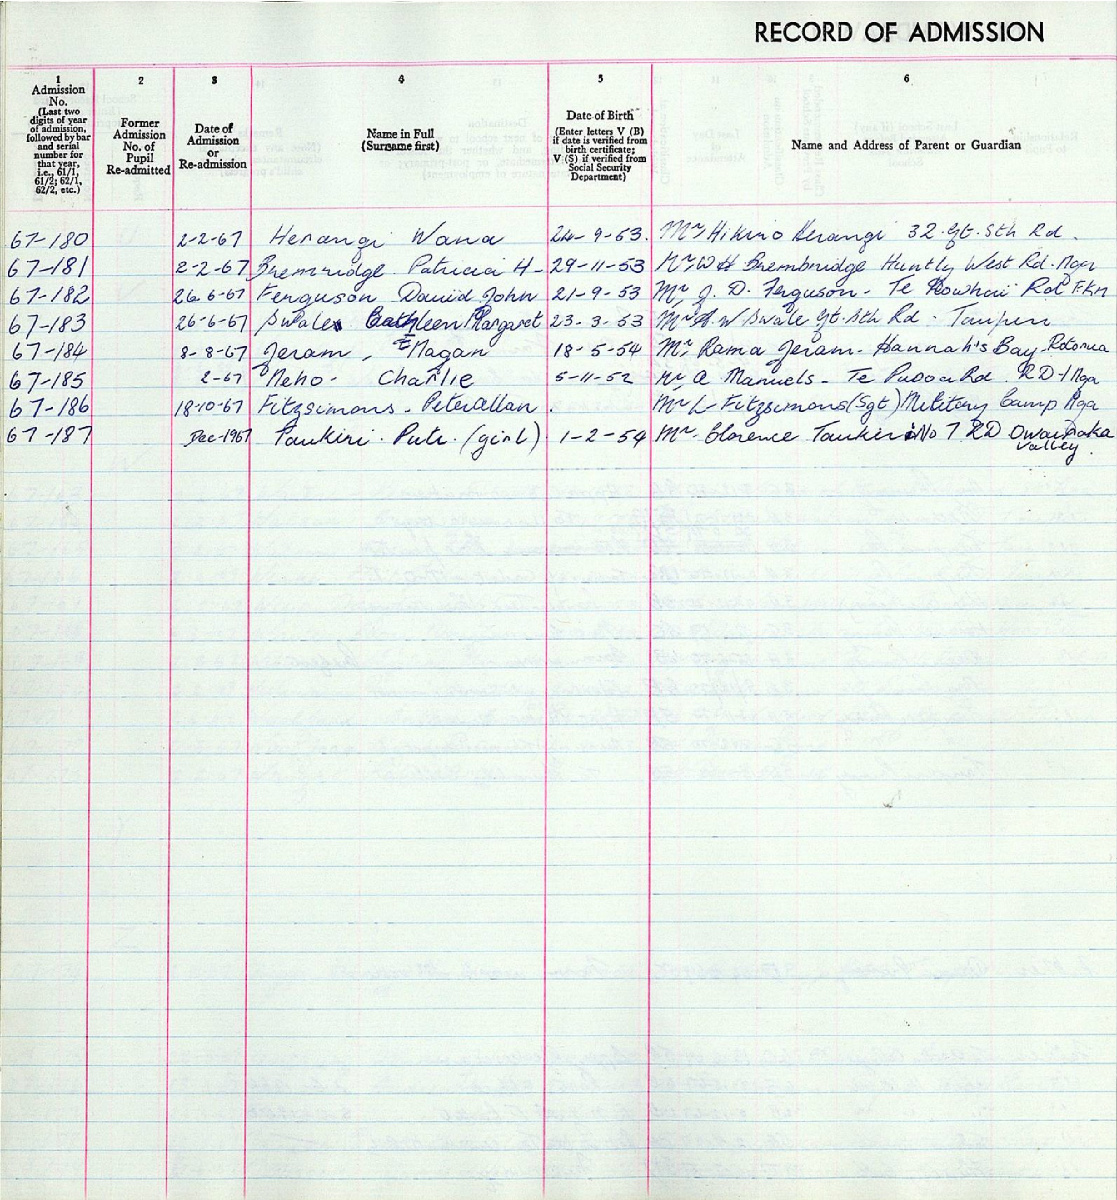 RECORD OF ADMISSION
1 2 3 4 5 6
Admission No. (Last two digits of year of admission, followed by bar and serial number for that year, i.e., 61/1, 61/2; 62/1, 62/2, etc.)
Former Admission No. of Pupil Re-admitted
Date of Admission or Re-admission
Name in Full (Surname first)
Date of Birth (Enter letters V (B) if date is verified from birth certificate; V (S) if verified from Social Security Department)
Name and Address of Parent or Guardian
67-180 2-2-67 Herangi Wana 24-9-53. Mr Hikino Herangi 32 Gt. Sth Rd.
67-181 2-2-67 Bremridge Patricia H- 29-11-53 Mr W H Brembridge Huntly West Rd. Nga
67-182 26-6-67 Ferguson David John 21-9-53 Mr J. D. Ferguson- Te Kowhai Rd
67-183 26-6-67 Swales Cathleen Margaret 23-3-53 Mr W Swale Gt. Sth Rd - Taupiri
67-184 8-8-67 Jeram, Magan 18-5-54 Mr Rama Jeram- Hannah's Bay Rotorua
67-185 2-67 Neho- Charlie 5-11-52 Mr A Manuels- Te Rd. RD-1 Nga
67-186 18-10-67 Fitzsimons- Peter allan. Mr L- Fitzsimons (Sgt) Military Camp Nga
67-187 Dec-1967 Taukiri. Puti. (girl) 1-2-54 Mr. Clarence Taukiri No 7 RD
Valley